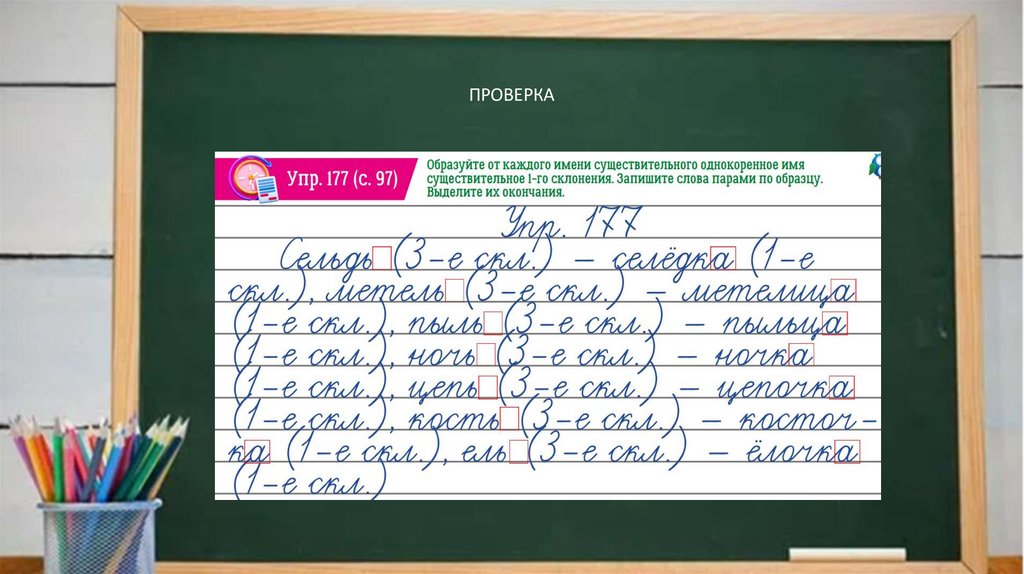 ПРОВЕРКА
Упр. 177 (с. 97)
Образуйте от каждого имени существительного однокоренное имя
существительное 1-го склонения. Запишите слова парами по образцу.
Выделите их окончания.
Упр. 177
Сельдь (3-е скл.) – селёдка (1-е
скл.), метель (3-е скл.) – метелица
(1-е скл.), пыль (3-е скл.) – пыльца
(1-е скл.), ночь (3-е скл.) – ночка
(1-е скл.), цепь (3-е скл.) – цепочка
(1-е скл.), кость (3-е скл.) – косточ-
ка (1-е скл.), ель (3-е скл.) – ёлочка
(1-е скл.)